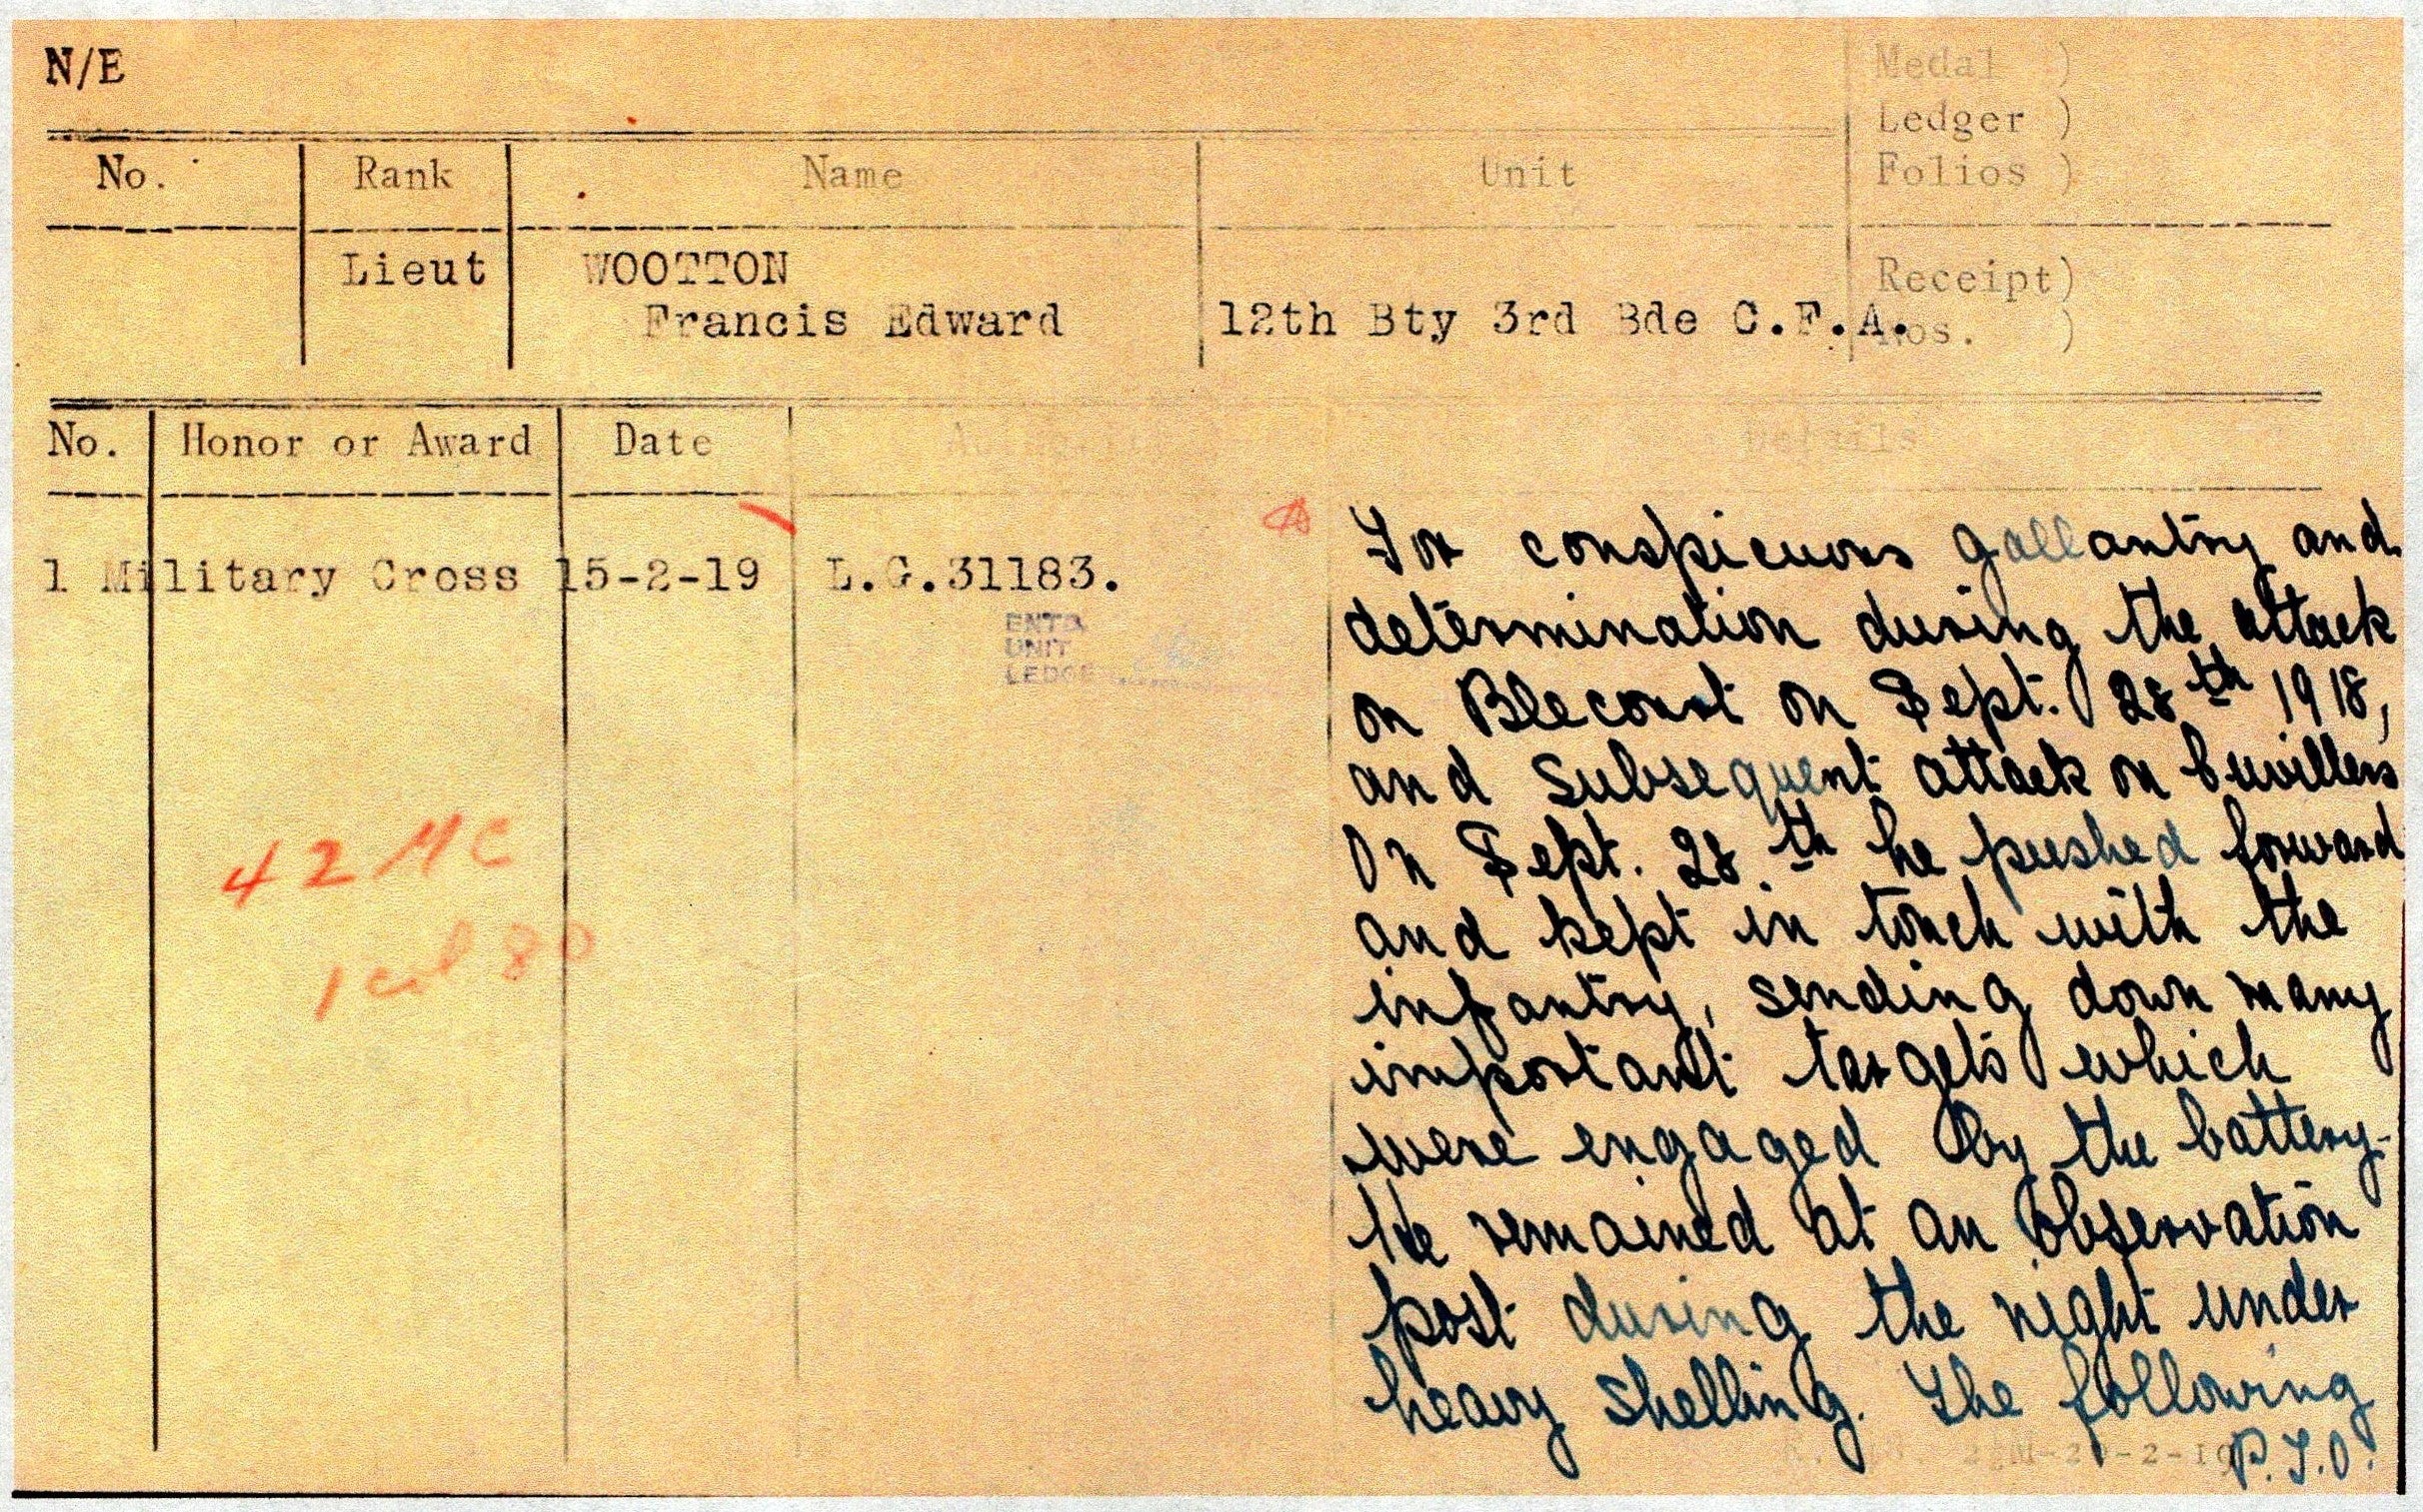 N/E
Medal )
Ledger )
Folios )
No. Rank Name Unit
Lieut WOOTTON Receipt)
Francis Edward 12th Bty 3rd Bde C.F.A. Nos. )
No. Honor or Award Date Details
1 Military Cross 15-2-19 L.G.31183.
UNIT
42 MC
For conspicuous gallantry and
determination during the attack
on Blecourt on Sept. 28th 1918,
and subsequent attack on Cuvillers
On Sept. 28th he pushed forward
and kept in touch with the
infantry, sending down many
important targets which
were engaged by the battery.
He remained at an observation
post during the night under
heavy shelling. The following
P.T.O.